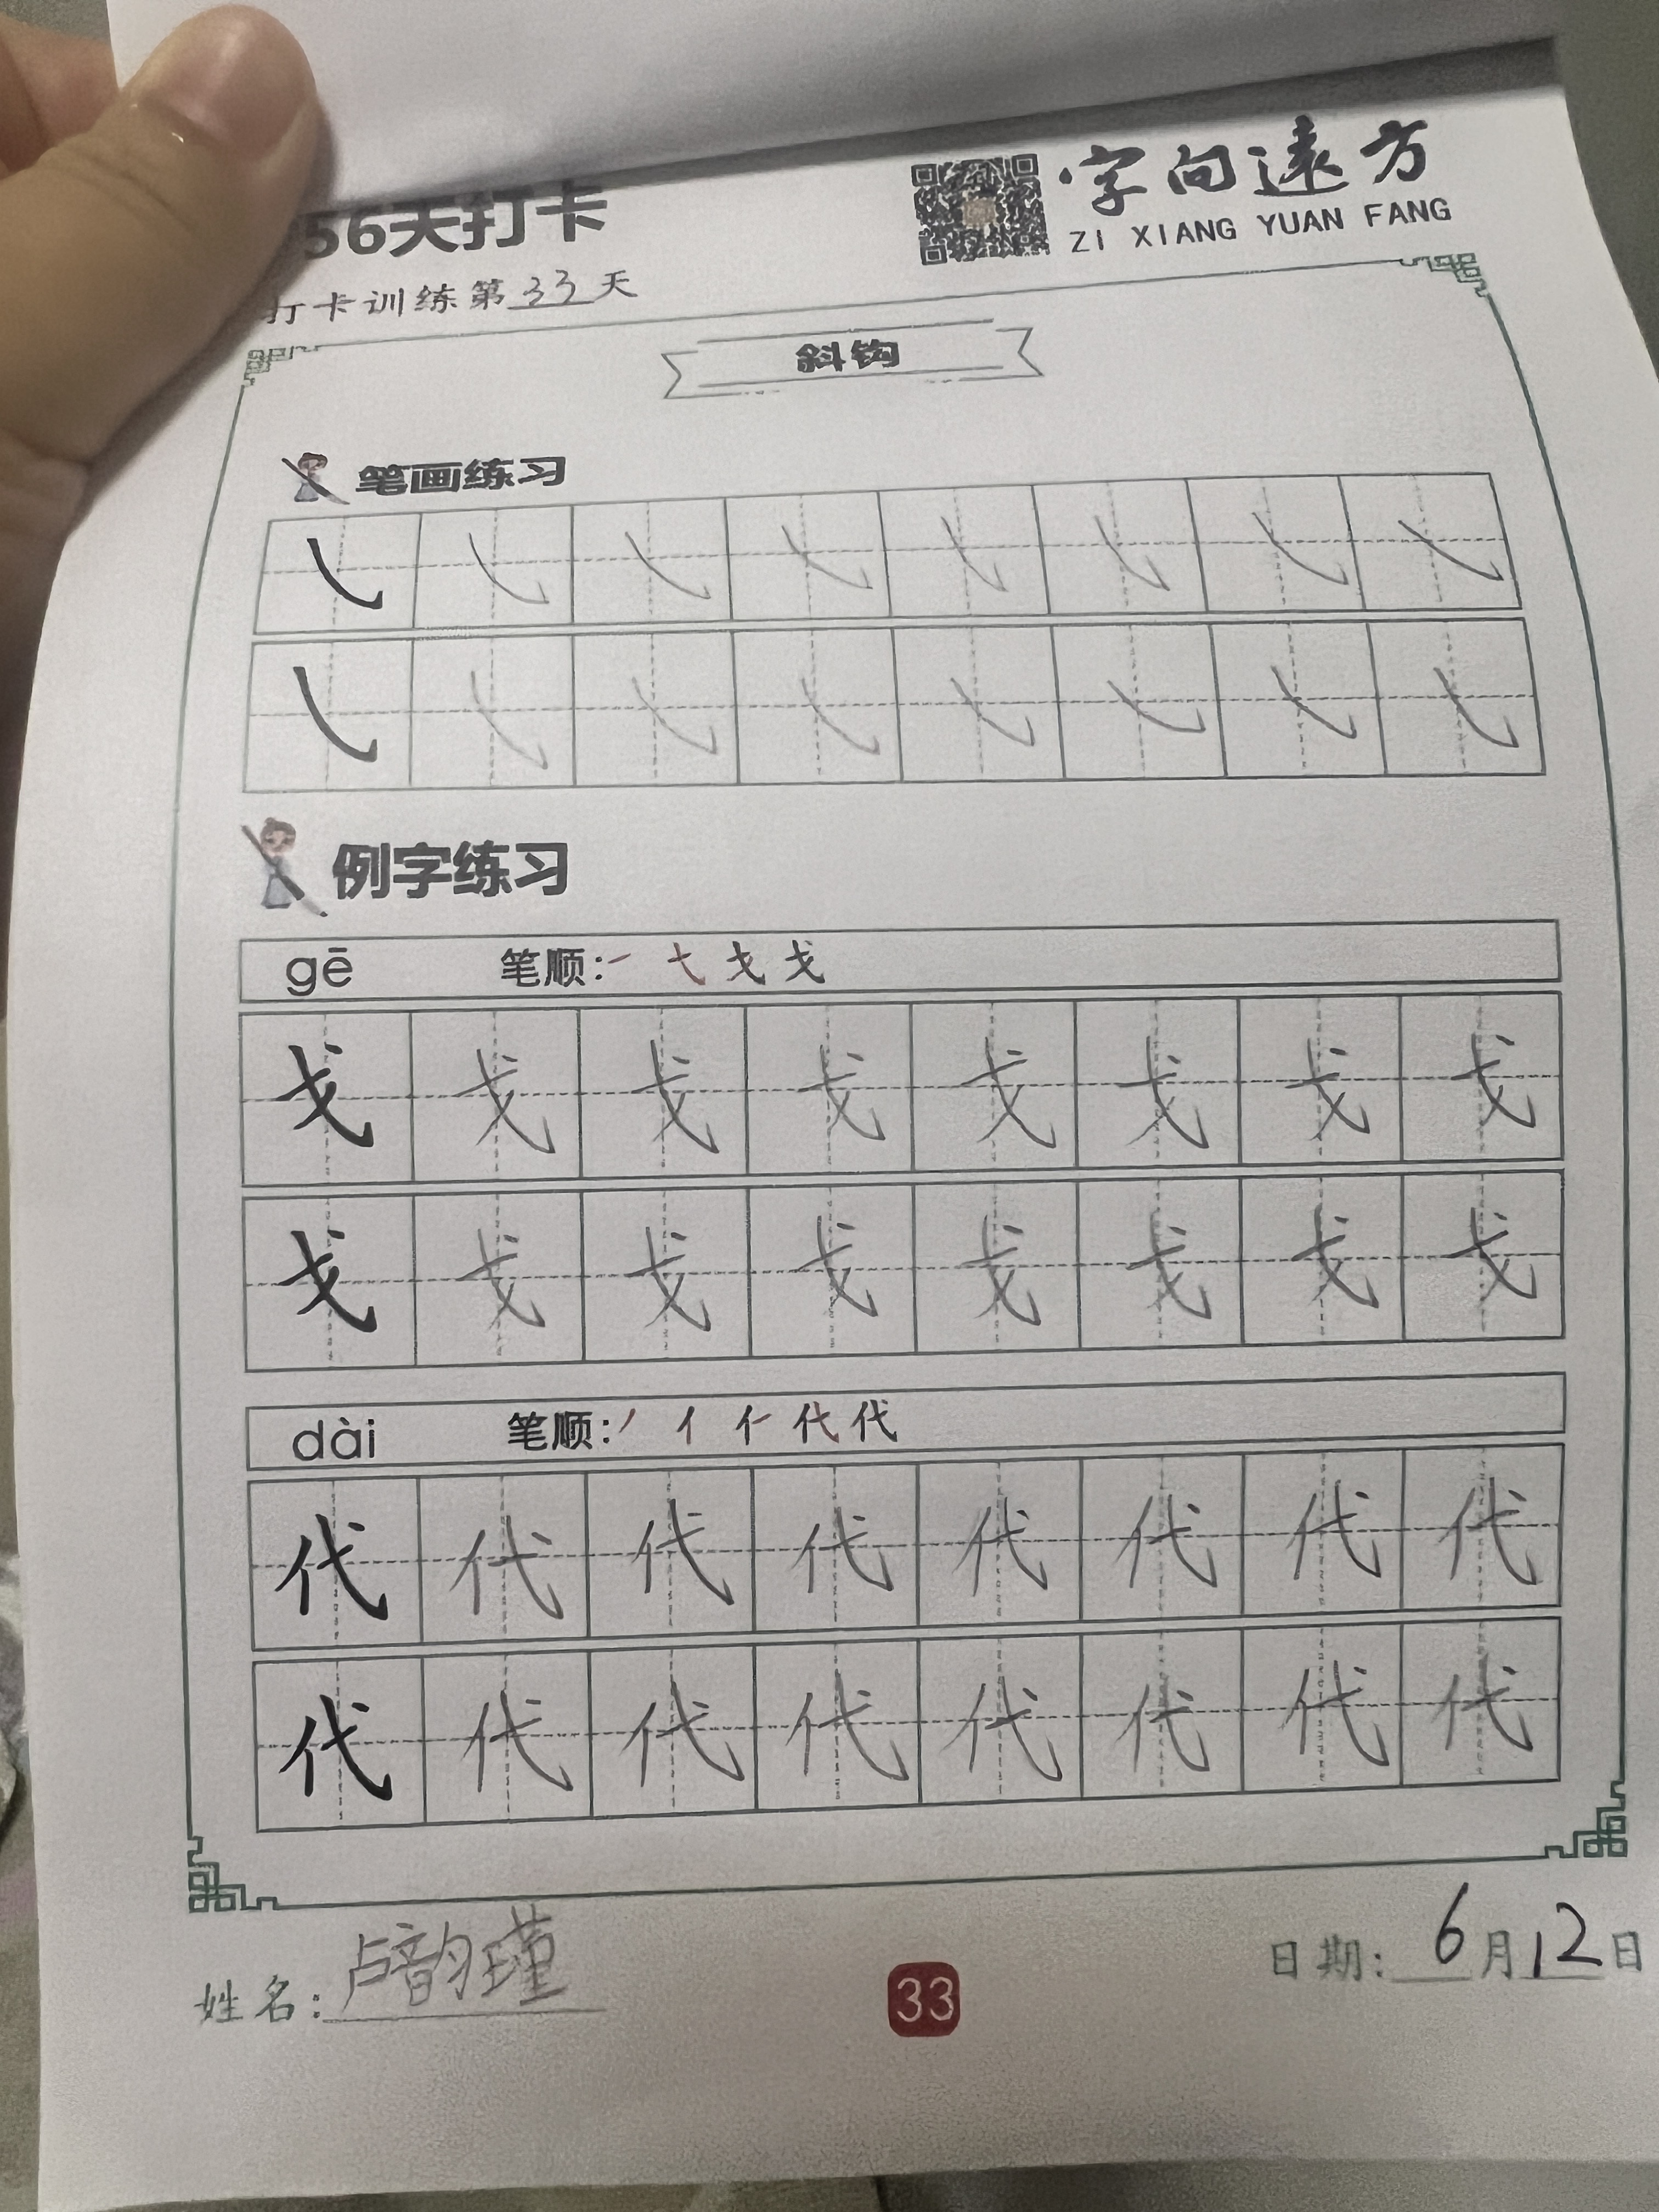 字向遠方
ZI XIANG YUAN FANG
56天打卡
打卡训练第33天
斜钩
笔画练习
㇂ ㇂ ㇂ ㇂ ㇂ ㇂ ㇂ ㇂
㇂ ㇂ ㇂ ㇂ ㇂ ㇂ ㇂ ㇂
例字练习
gē 笔顺:㇀ 弋 戈 戈
戈 戈 戈 戈 戈 戈 戈 戈
戈 戈 戈 戈 戈 戈 戈 戈
dài 笔顺:丿 亻 代 代
代 代 代 代 代 代 代 代
代 代 代 代 代 代 代 代
姓名:卢韵瑾
33
日期:6月12日